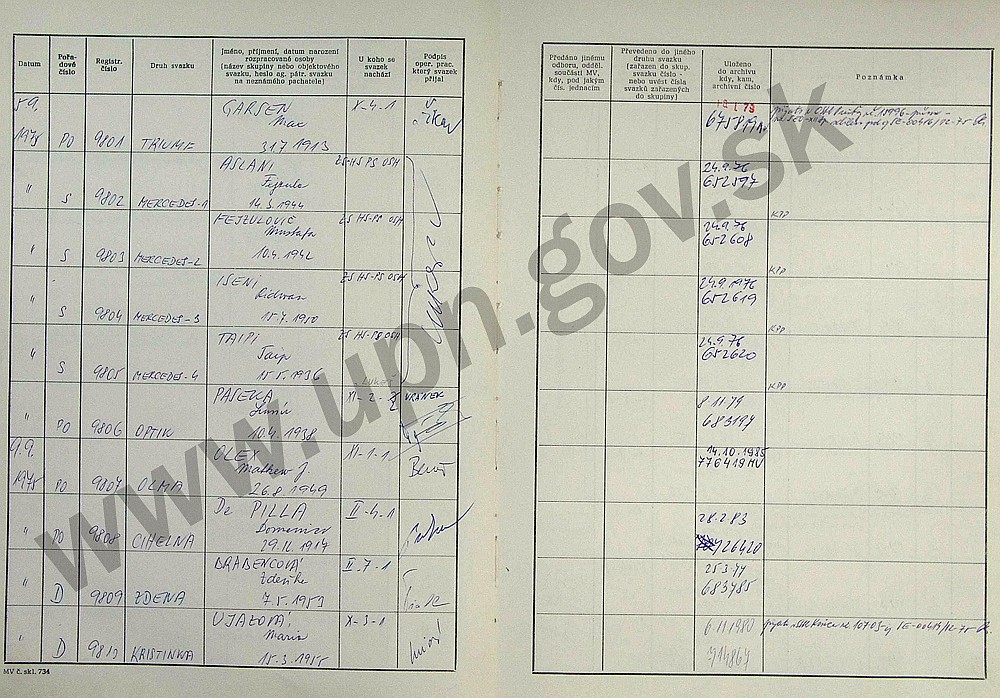 Datum
Pořa-
dové
číslo
Registr.
číslo
Druh svazku
Jméno, příjmení, datum narození
rozpracované osoby
(název skupiny nebo objektového
svazku, heslo ag. pátr. svazku
na neznámého pachatele)
U koho se
svazek
nachází
Podpis
oper. prac.
který svazek
přijal
Předáno jinému
odboru, odděl.
součásti MV,
kdy, pod jakým
čís. jednacím
Převedeno do jiného
druhu svazku
(zařazen do skup.
svazku číslo -
nebo uvést čísla
svazků zařazených
do skupiny)
Uloženo
do archivu
kdy, kam,
archivní číslo
Poznámka
1975 PO 9801 TRIUMF GARSEN
Mac
31.7.1913 X-4-1
675819
" S 9802 MERCEDES-1 ASLANI
Fejzula
14.3.1944 ZS-HS PS OSH 24.9.76
652597
KPP
" S 9803 MERCEDES-2 FEJZULOVIČ
Mustafa
10.4.1942 ZS HS-PS OSH 24.9.76
652608
KPP
" S 9804 MERCEDES-3 ISENI
Ridvan
15.7.1950 ZS HS-PS OSH 24.9.1976
652619
KPP
" S 9805 MERCEDES-4 TAIPI
Taip
15.5.1936 ZS HS-PS OSH 24.9.76
652620
KPP
" PO 9806 OPTIK
10.4.1938 VRÁNEK 8.11.79
683197
9.9.
1975 PO 9807 OLMA OLEX
Mathew J.
26.8.1949 XI-1-1 Beneš 14.10.1985
776419 MV
" PO 9808 CIHELNA De PILLA
Domenico
29.12.1917 II-4-1 28.2.83
726420
" D 9809 ZDENA DRABENCOVÁ
Zdeňka
7.5.1953 II-7-1
683785
" D KRISTINKA UJAZOVÁ
Maria
15.3.1955 X-3-1 6.11.1980
714867
MV č. skl. 734
www.upn.gov.sk